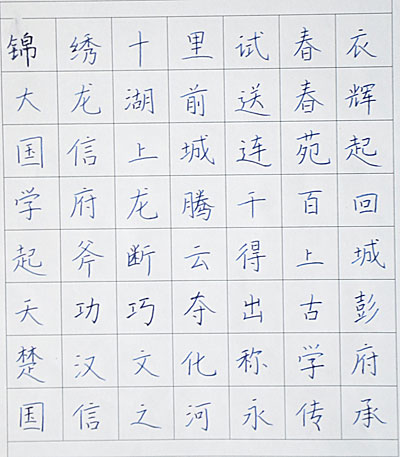 锦绣十里试春衣
大龙湖前送春辉
国信上城连苑起
学府龙腾千百回
起斧断云得上城
天功巧夺出古彭
楚汉文化称学府
国信之河永传承